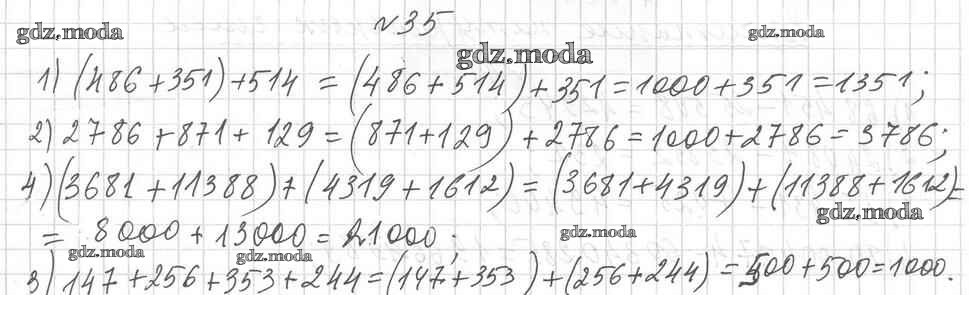 №35
gdz.moda
gdz.moda
gdz.moda
1) (486+351)+514 = (486+514)+351=1000+351=1351;
2) 2786+871+129=(871+129)+2786=1000+2786=3786;
4) (3681+11388)+(4319+1612)=(3681+4319)+(11388+1612)=
gdz.moda
= 8000+13000=21000;
gdz.moda
gdz.moda
gdz.moda
3) 147+256+353+244=(147+353)+(256+244)=500+500=1000.